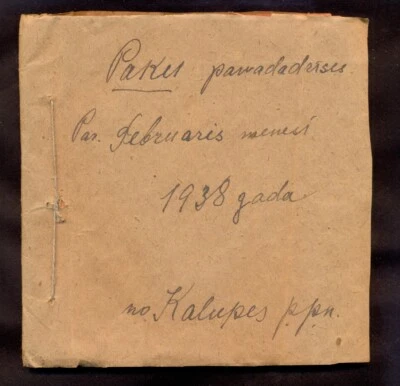 Paket pawadadresses
Par. Februaris menesi
1938 gada
no. Kalupes p.p.n.